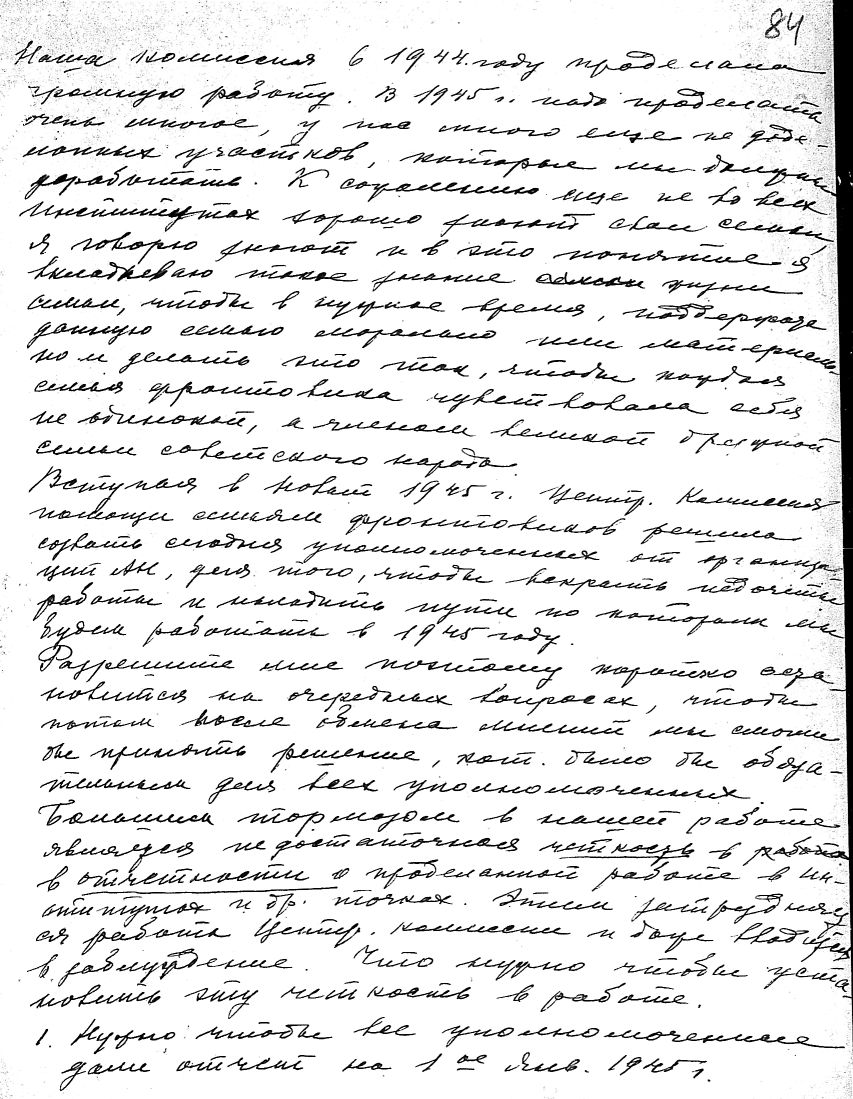 84
Наша комиссия в 1944 году проделала
громную работу. В 1945 г. надо проделать
очень многое, у нас много еще не доде-
ланных участков, которые мы должны
доработать. К сожалению еще не во всех
Институтах хорошо знают свои семьи,
я говорю знают и в это понятие я
вкладываю такое знание жизни
семьи, чтобы в нужное время, поддержать
данную семью морально или материаль-
но и делать это так, чтобы каждая
семья фронтовика чувствовала себя
не одинокой, а членом великой дружной
семьи советского народа.
Вступая в новый 1945 г. Центр. Комиссия
помощи семьям фронтовиков решила
созвать сегодня уполномоченных от организа-
ций АН, для того, чтобы вскрыть недочеты
работы и наладить пути по которым мы
будем работать в 1945 году.
Разрешите мне поэтому коротко оста-
новится на очередных вопросах, чтобы
потом после обмена мнений мы смогли
бы принять решение, кот. было бы обяза-
тельным для всех уполномоченных.
Большим тормозом в нашей работе
является недостаточная четкость в работе
в отчетности о проделанной работе в Ин-
ститутах и др. точках. Этим затрудняет
ся работа Центр. комиссии и даже вводится
в заблуждение. Что нужно чтобы уста-
новить эту четкость в работе.
1. Нужно чтобы все уполномоченные
дали отчет на 1ое Янв. 1945 г.